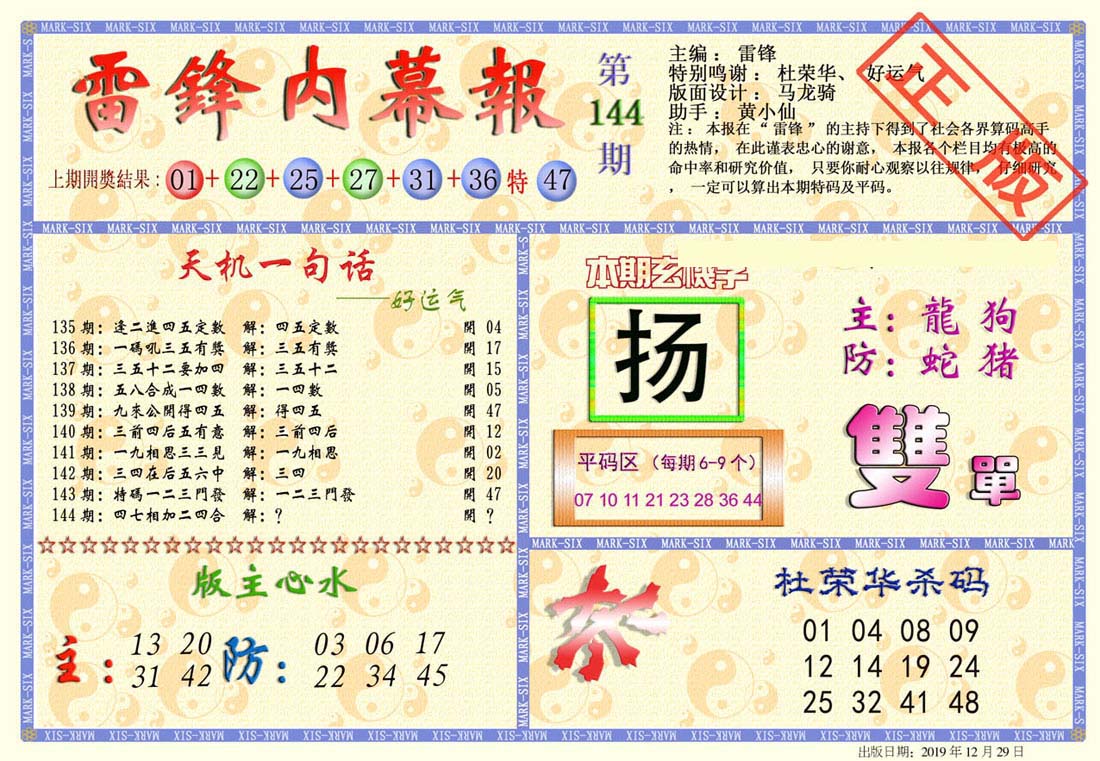 雷鋒内幕報
第144期
主编：雷锋
特别鸣谢：杜荣华、好运气
版面设计：马龙骑
助手：黄小仙
注：本报在“雷锋”的主持下得到了社会各界算码高手
的热情，在此谨表忠心的谢意，本报各个栏目均有极高的
命中率和研究价值，只要你耐心观察以往规律，仔细研究
，一定可以算出本期特码及平码。
正版
上期開獎結果：01+22+25+27+31+36特47
天机一句话
——好运气
135期：逢二進四五定數 解：四五定數 開04
136期：一碼吼三五有獎 解：三五有獎 開17
137期：三五十二要加四 解：三五十二 開15
138期：五八合成一四數 解：一四數 開05
139期：九來公開得四五 解：得四五 開47
140期：三前四后五有意 解：三前四后 開12
141期：一九相思三三見 解：一九相思 開02
142期：三四在后五六中 解：三四 開20
143期：特碼一二三門發 解：一二三門發 開47
144期：四七相加二四合 解：？ 開？
本期玄機字
扬
主：龍 狗
防：蛇 猪
平码区（每期6-9个）
07 10 11 21 23 28 36 44
雙單
版主心水
主：13 20 31 42
防：03 06 17 22 34 45
杀
杜荣华杀码
01 04 08 09
12 14 19 24
25 32 41 48
MARK-SIX
出版日期：2019年12月29日